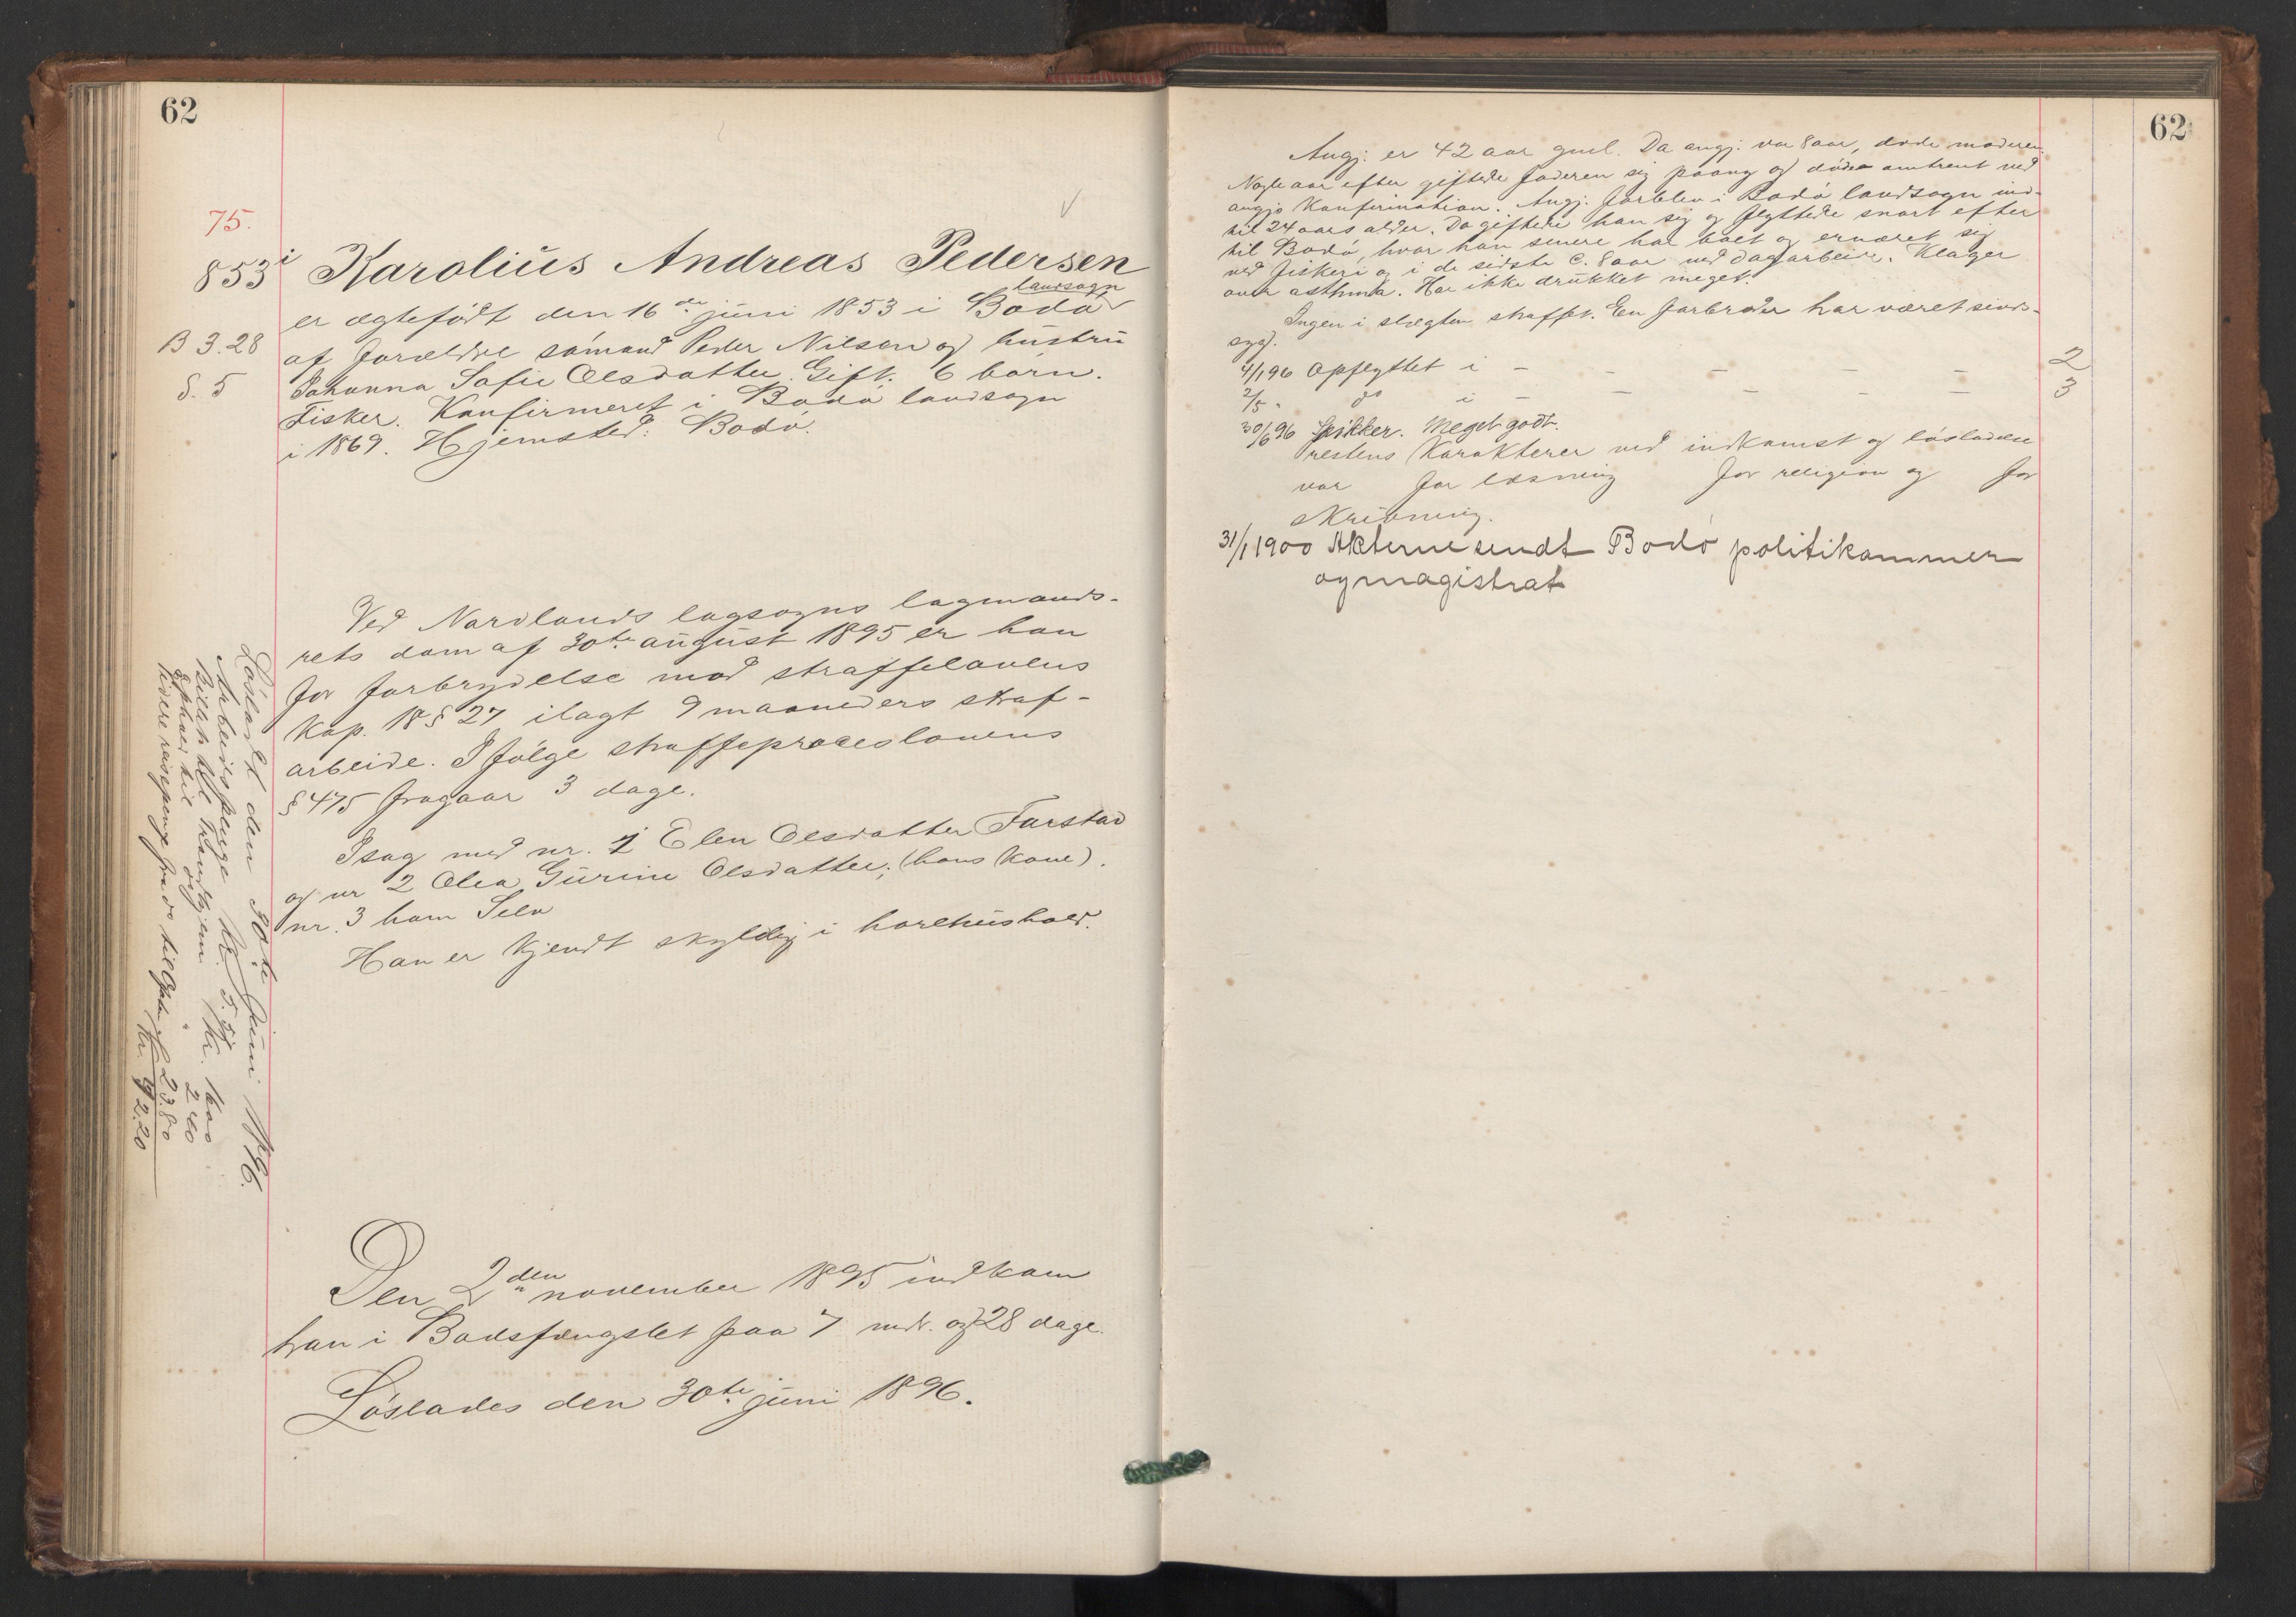 62
75.
853 i
B 3.28
S. 5
Karolius Andreas Pedersen
landsogn
er ægtefødt den 16de juni 1853 i Bodø
af forældre sømand Peder Nilsen og hustru
Johanna Sofie Olsdatter. Gift. 6 børn.
Fisker. Konfirmeret i Bodø landsogn
i 1869. Hjemsted: Bodø.
Ved Nordlands lagsogns lagmands-
rets dom af 30te august 1895 er han
for forbrydelse mod straffelovens
Kap. 18 § 27 ilagt 9 maaneders straf-
arbeide. Ifølge straffeproceslovens
§ 475 fragaar 3 dage.
I sag med nr. 1 Elen Olsdatter Farstad
og nr 2 Olea Gurine Olsdatter, (hans Kone).
nr. 3 ham Selv
Han er Kjendt skyldig i horehushold.
Løsladt den 30te juni 1896.
Arbeidspenge
Billet til Trondhjem Kr. 16.00
Ophold til do " 2.40
Videre reisepenge fra do til 23.80
Kr. 42.20
Den 2den november 1895 indkom
han i Bodsfængslet paa 7 mdr. og 28 dage.
Løslades den 30te juni 1896.
62
Angj. er 42 aar gml. Da angj. var 8 aar, døde moderen.
Nogle aar efter giftede faderen sig paany og døde omtrent ved
angjs Konfirmation. Angj. forblev i Bodø landsogn ind-
til 24 aars alder. Da giftede han sig og flyttede snart efter
til Bodø, hvor han senere har boet og ernæret sig
ved fiskeri og i de sidste c. 8 aar ved dagarbeide. Klager
over asthma. Har ikke drukket meget.
Ingen i slægten straffet. En farbroder har været sinds-
syg.
4/1 96 Opflyttet i - - - - - 2
2/5 - do i - - - - - 3
30/6 96 Sikker. Meget godt.
Prestens Karakterer ved indkomst og løsladelse
var for læsning for religion og for
skrivning.
31/1 1900 Akterne sendt Bodø politikammer
og magistrat